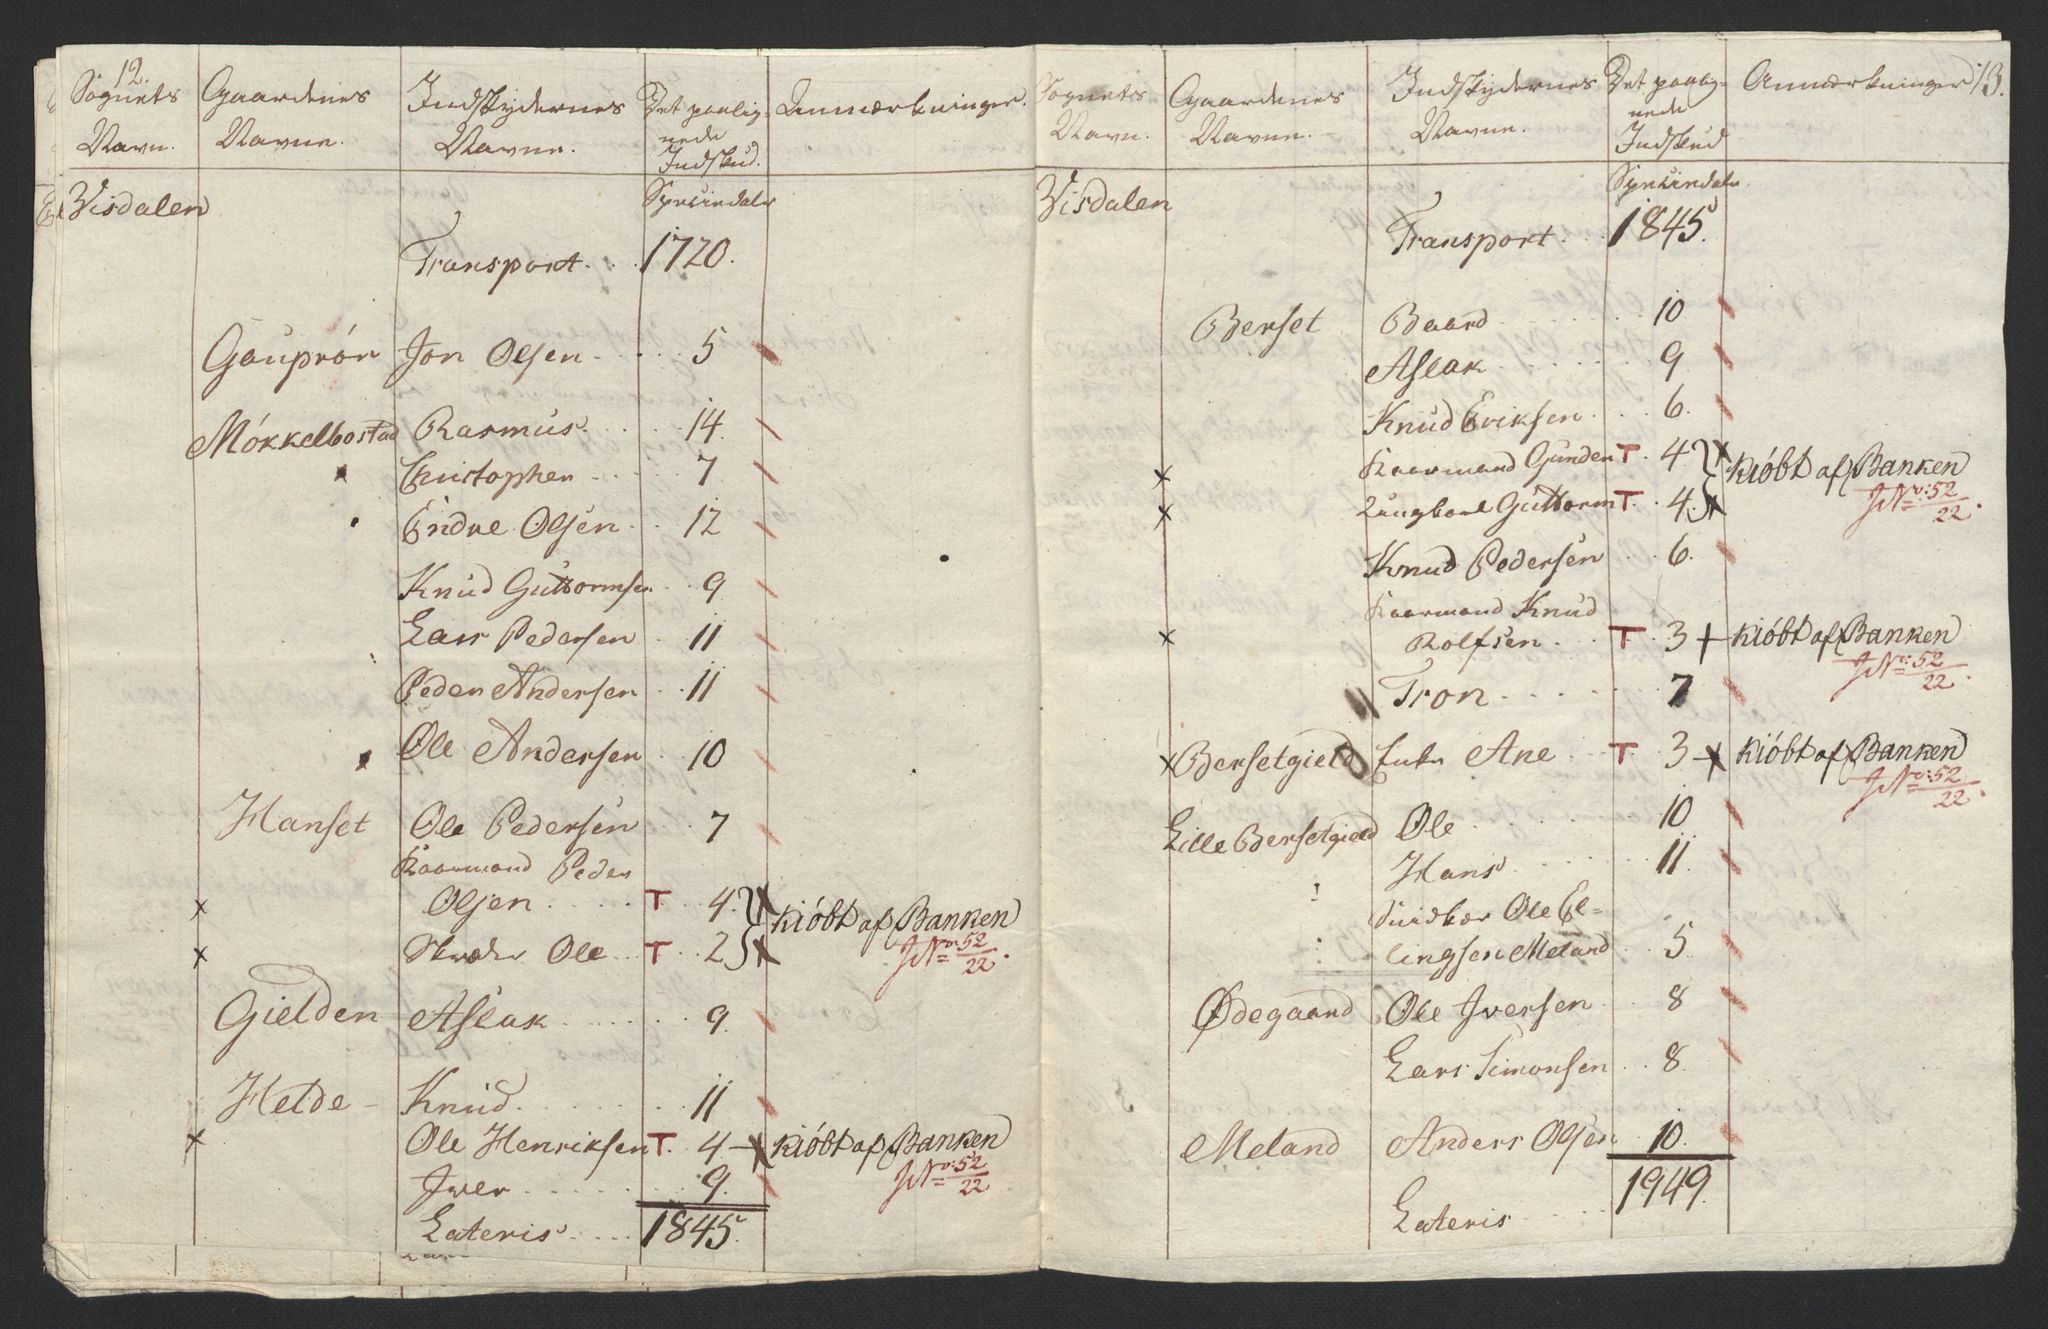 12.
Sognets Navn. Gaardenes Navne. Indskydernes Navne. Det paalignede Indskud. Anmærkninger.
Speciedaler
Visdalen
Transport 1720.
Gauprør Jon Olsen 5
Møkkelbostad Rasmus 14.
Christopher 7
Endre Olsen 12
Knud Guttormsen 9
Lars Pedersen 11
Peder Andersen 11
Ole Andersen 10
Hanset Ole Pedersen 7
Kaarmand Peder
Olsen T 4. Kiöbt af Banken
Skræder Ole T 2 JNo: 52/22.
Gielden Aslak 9.
Helde Knud 11
Ole Henriksen T. 4 Kiöbt af Banken
Iver 9. JNo: 52/22
Lateris 1845.
13.
Sognets Navn. Gaardenes Navne. Indskydernes Navne. Det paalignede Indskud Anmærkninger
Speciedaler
Visdalen
Transport 1845.
Berset Baard 10
Aslak 9
Knud Eriksen 6.
Kaarmand Gunder T 4 Kiöbt af Banken
Guttorm T. 4. JNo: 52/22.
Knud Pedersen 6.
Kaarmand Knud
Rolfsen T 3 Kiöbt af Banken
JNo: 52/22.
Tron 7
Bersetgield Enke Ane T 3 Kiöbt af Banken
JNo: 52/22.
Lille Bersetgield Ole 10
Hans 11.
Ole El=
lingsen Meland 5
Ødegaard Ole Iversen 8
Lars Simonsen 8.
Meland Anders Olsen 10.
Lateris 1949.